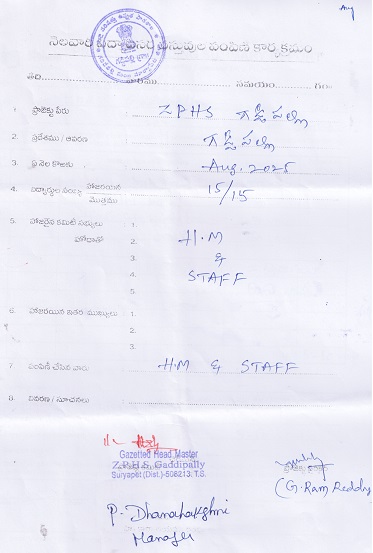 Aug
నెలవారి విద్యార్థుల వస్తువుల పంపిణి కార్యక్రమం
తేది వారము సమయం గం
1. ప్రాజెక్టు పేరు ZPHS గడ్డిపల్లి
2. ప్రదేశము / ఆవరణ గడ్డిపల్లి
3. ఏ నెల కొరకు Aug. 2025
4. విద్యార్థుల సంఖ్య హాజరయిన 15/15
మొత్తము
5. హాజరైన కమిటి సభ్యులు 1.
హోదాతో 2. H.M
3. &
4. STAFF
5.
6. హాజరయిన ఇతర ముఖ్యులు 1.
2.
3.
7 పంపిణీ చేసిన వారు H.M & STAFF
8 వివరణ / సూచనలు
Gazetted Head Master
Z.P.H.S. Gaddipally
Suryapet (Dist.)-508213. T.S.
(G. Ram Reddy)
P. Dhanalakshmi
Manager